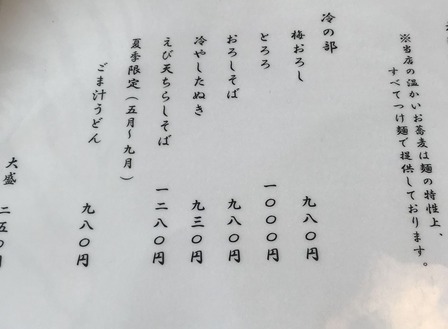 ※当店の温かいお蕎麦は麺の特性上、
すべてつけ麺で提供しております。
冷の部
梅おろし 九八〇円
とろろ 一〇〇〇円
おろしそば 九八〇円
冷やしたぬき 九三〇円
えび天ちらしそば 一二八〇円
夏季限定（五月〜九月）
ごま汁うどん 九八〇円
大盛 二五〇円